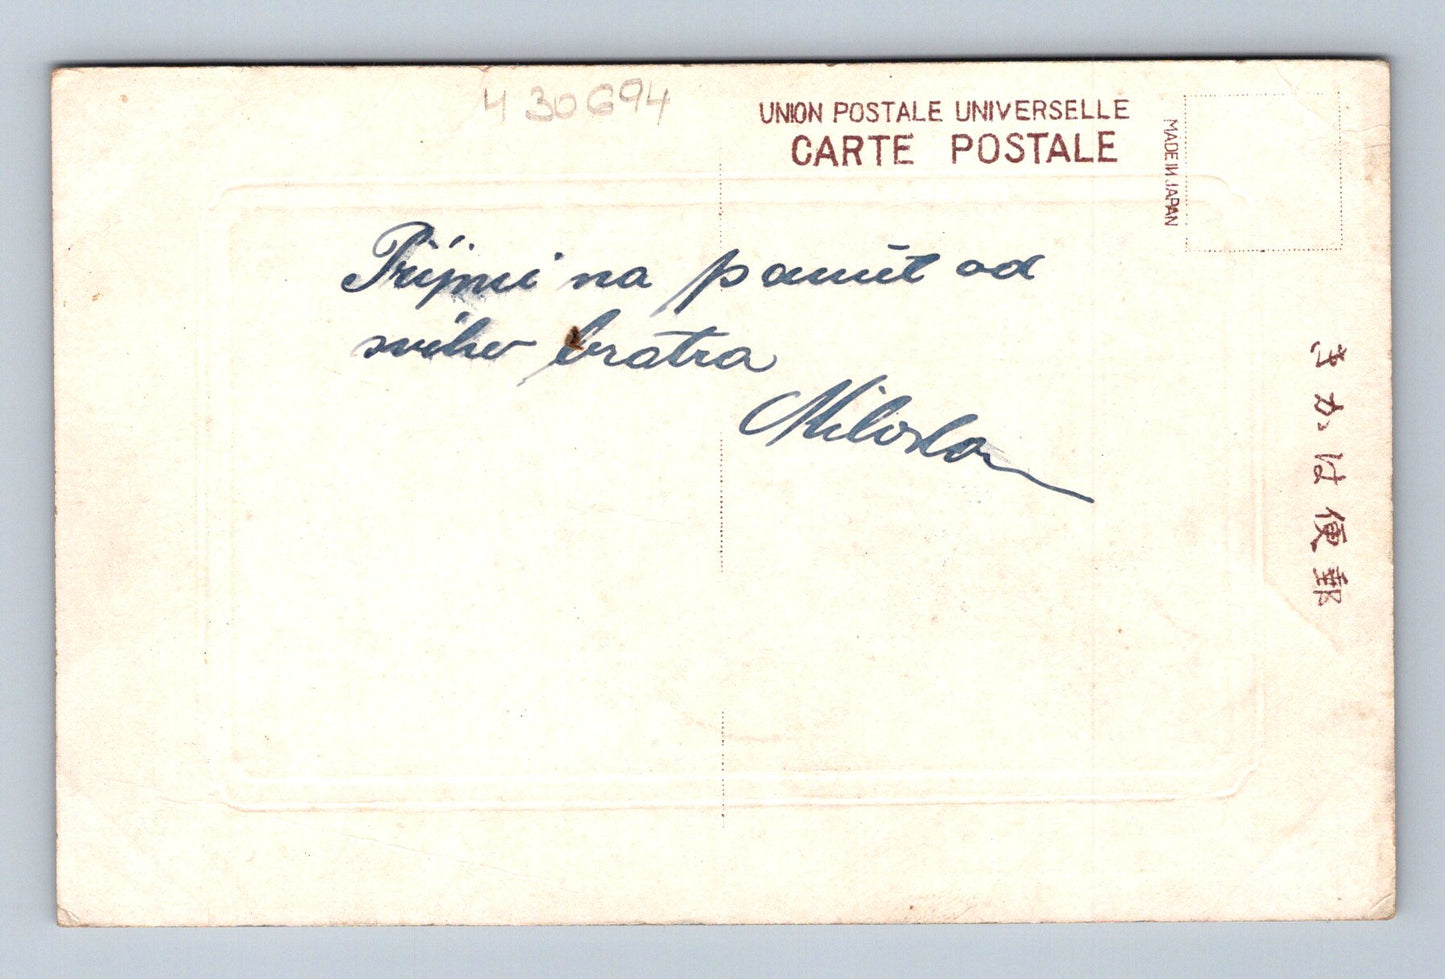 430694
UNION POSTALE UNIVERSELLE
CARTE POSTALE
MADE IN JAPAN
Přijmi na pamět od
svého bratra
Miloslav
きかは便郵